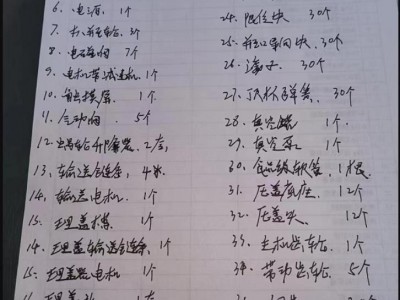 6、电源 1个
7、 3个
8、电磁阀 7个
9、电机带减速机 1个
10、触摸屏 1个
11、气动阀 5个
2套
13、输送链条 4米
14、输送电机 1个
15、理盖 1个
14、理盖输送链条 1个
15、理盖器电机 1个
24、限位块 30个
25、导向块 30个
26、滚子 30个
27、顶杆弹簧 30个
28、真空罐 1个
29、真空泵 1个
30、食品级软管 1根
31、压盖底座 12个
32、压盖头 12个
33、主机齿轮 1个
34、带动齿轮 5个